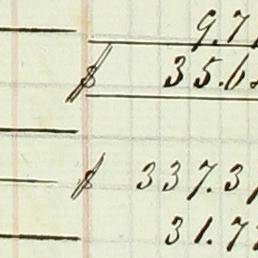 9.7
$ 35.6
$ 337.3
31.7